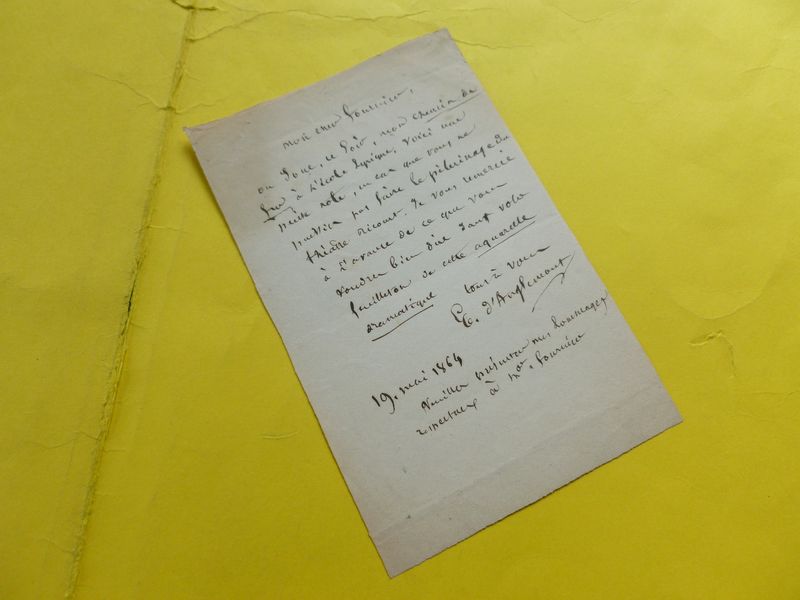 mon cher Fournier,
on joue, ce soir, mon chemin de
fer à l'école lyrique. Voici une
petite note, en cas que vous ne
puissiez pas faire le pèlerinage du
théâtre Ricourt. Je vous remercie
à l'avance de ce que vous
voudrez bien dire dans votre
feuilleton de cette aquarelle
dramatique
tout à vous
E. d'Anglemont
19. mai 1864
Veuillez présenter mes hommages
respectueux à Me. Fournier